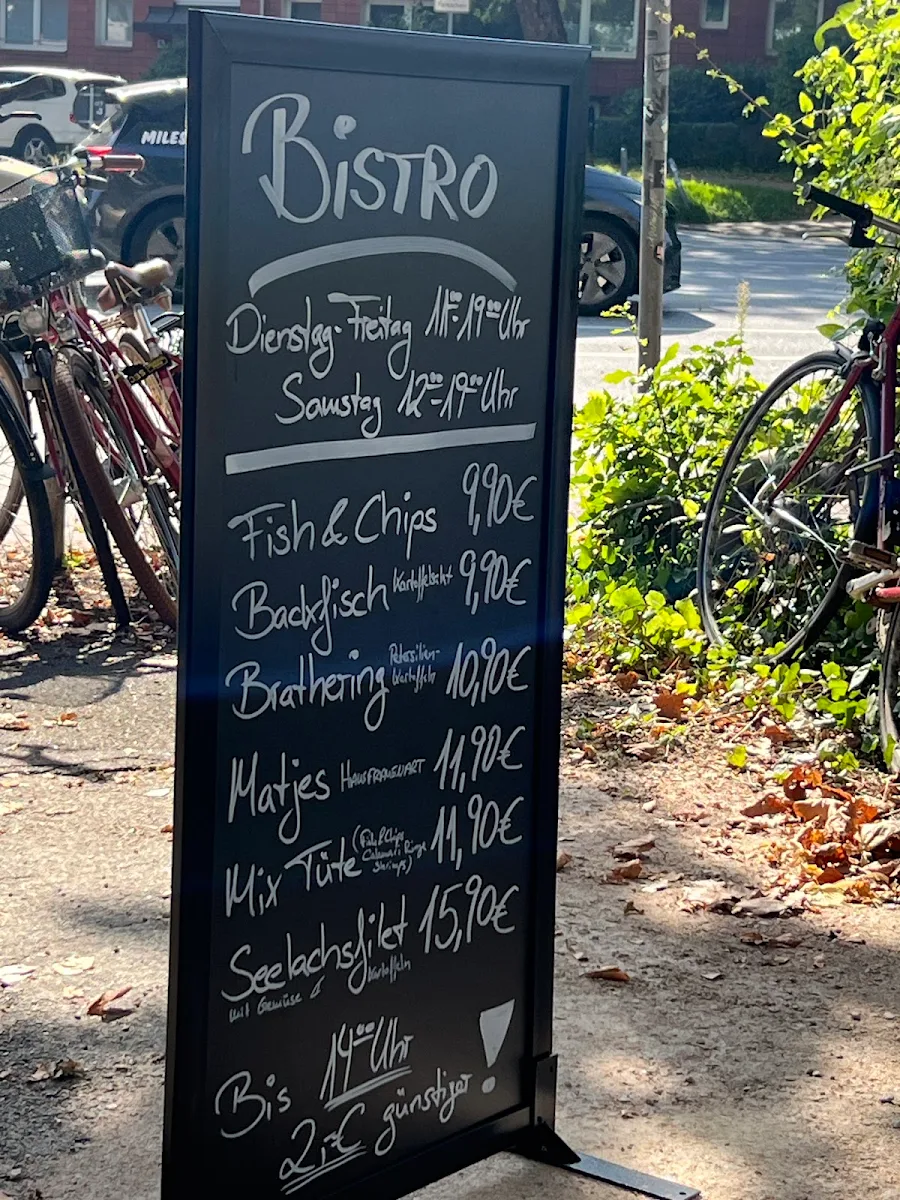 MILES
BiSTRO
Dienstag-Freitag 11⁰⁰-19⁰⁰ Uhr
Samstag 12⁰⁰-19⁰⁰ Uhr
Fish & Chips 9,90€
Backfisch Kartoffelsalat 9,90€
Brathering Petersilien-
kartoffeln 10,90€
Matjes HAUSFRAUENART 11,90€
Mix Tüte (Fish & Chips
Calamari Ringe
Shrimps) 11,90€
Seelachsfilet 15,90€
mit Gemüse & Kartoffeln
Bis 14⁰⁰ Uhr
2,-€ günstiger !